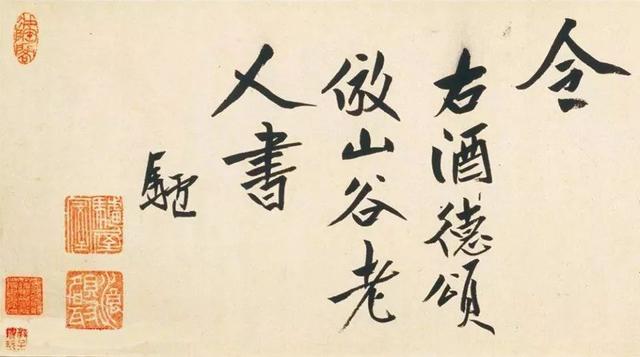 令
右酒德頌
倣山谷老
人書